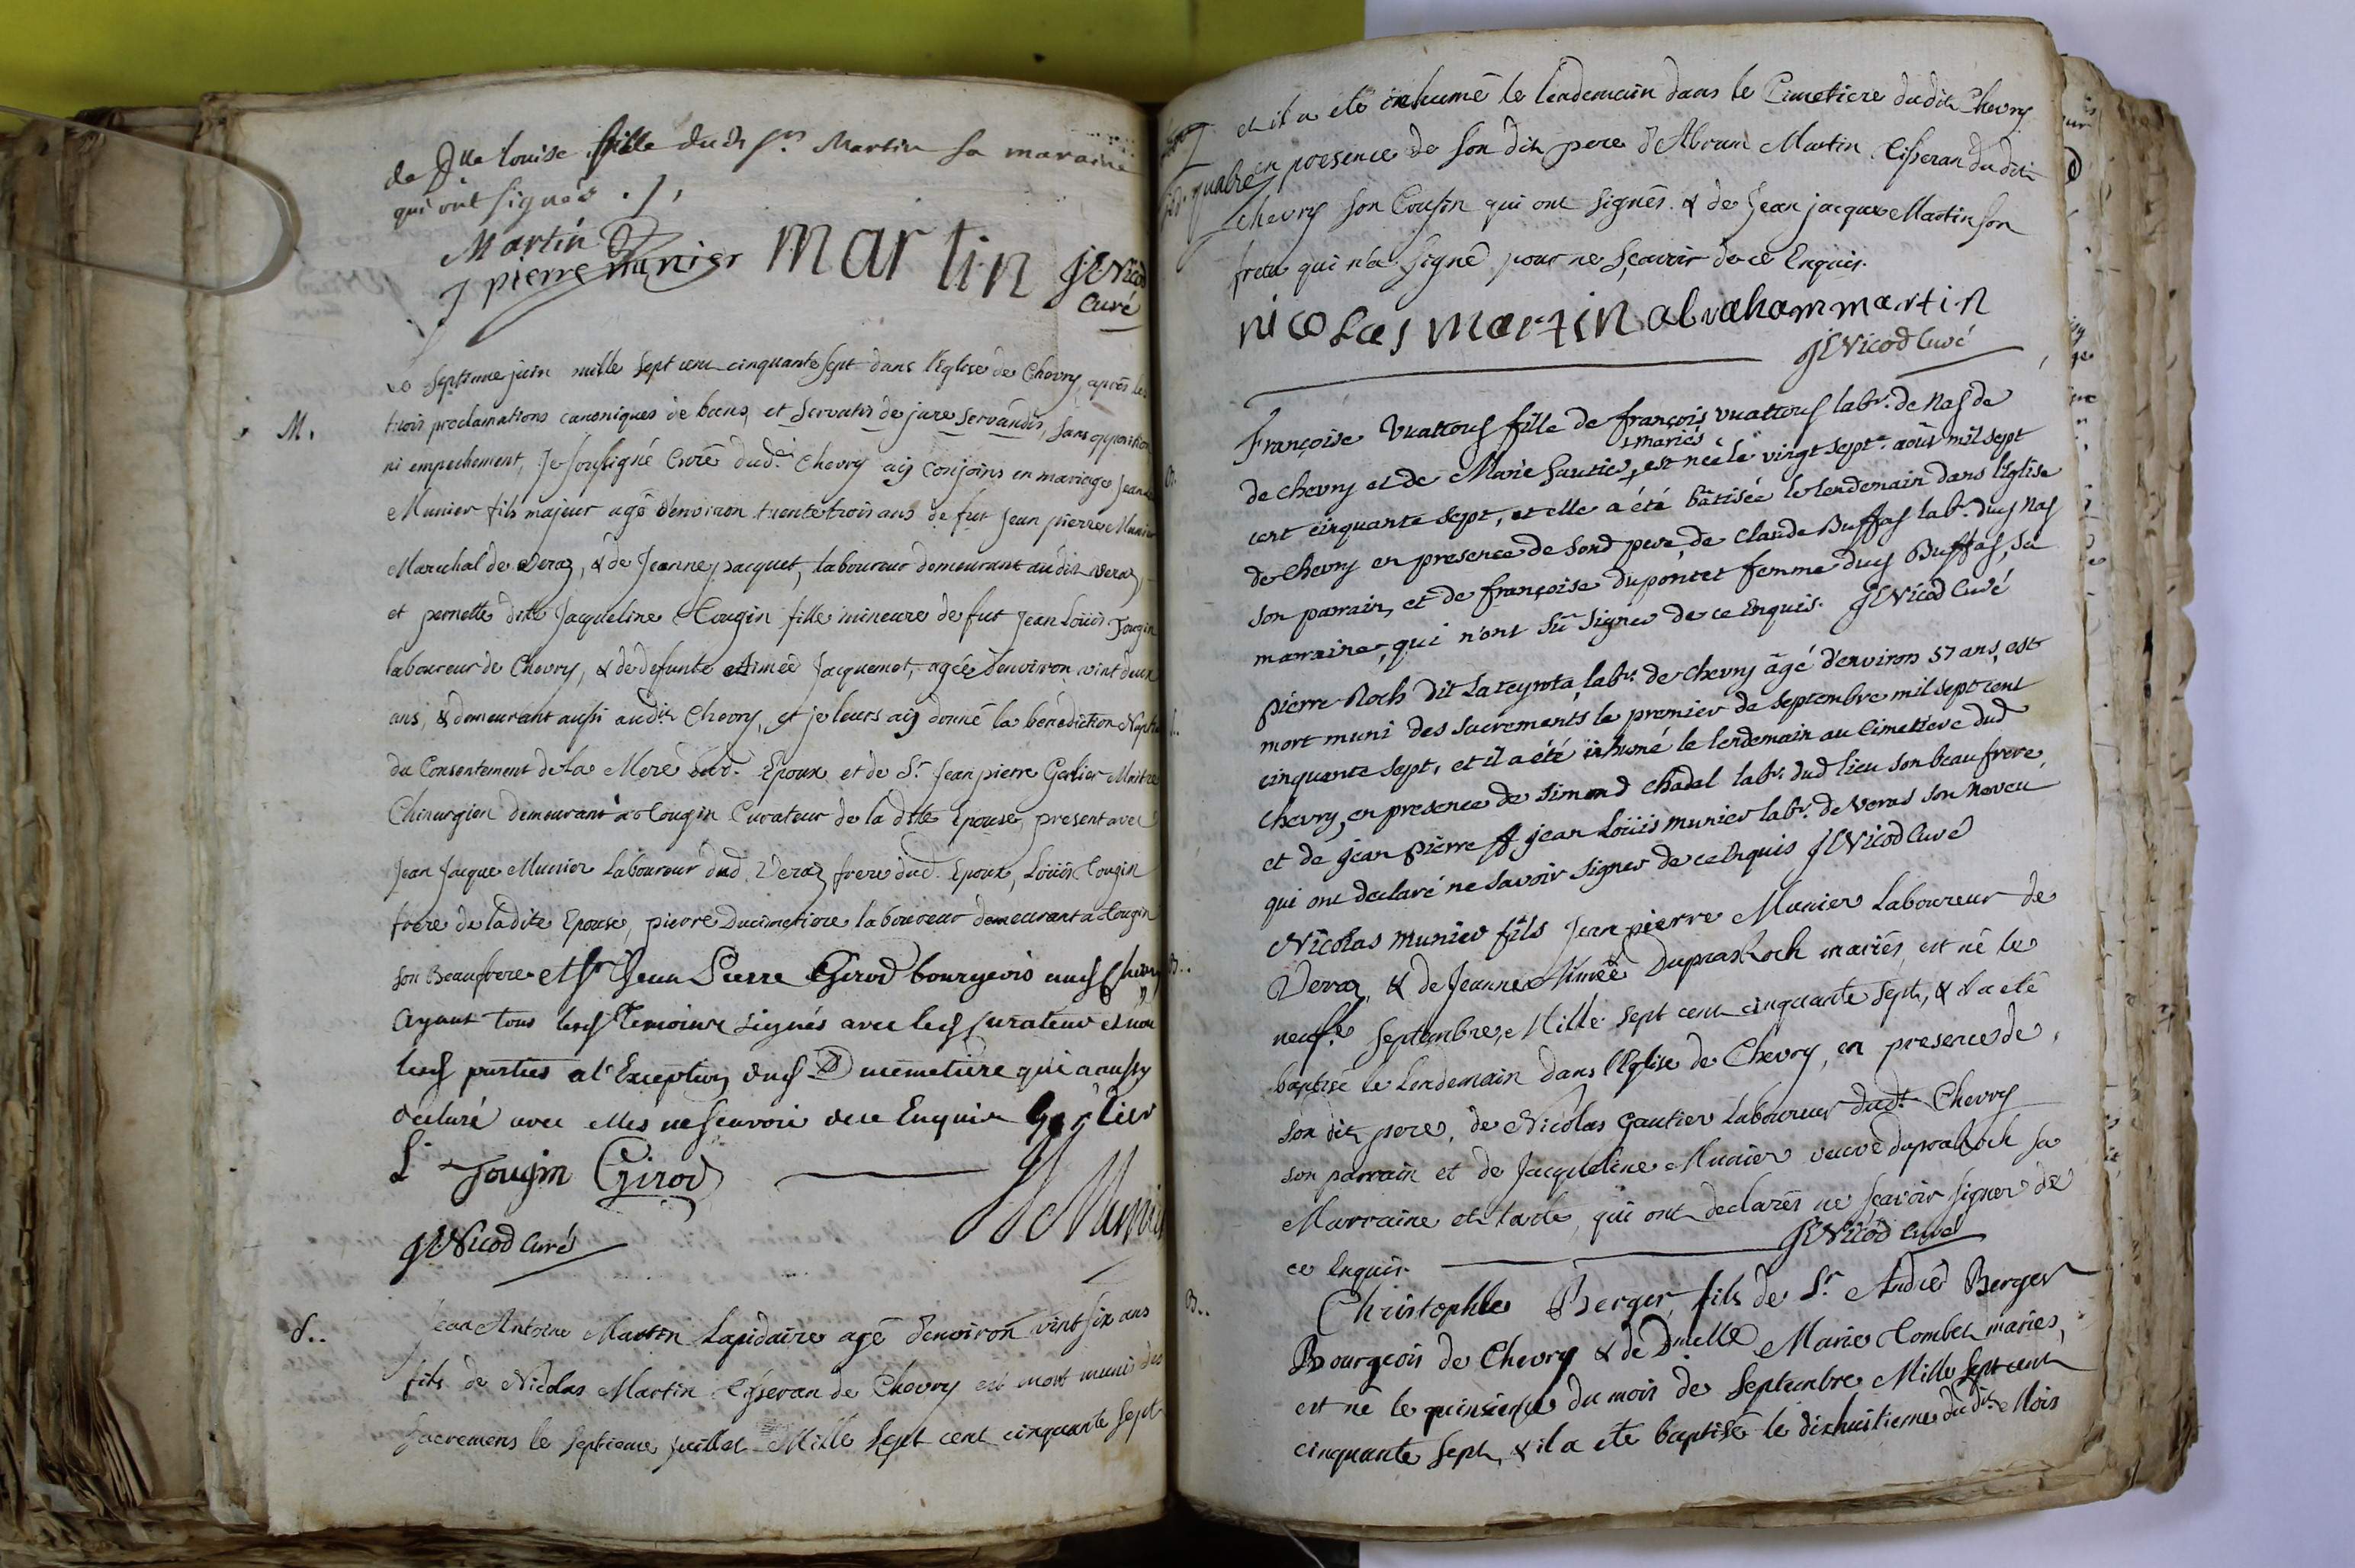 de Dlle Louise fille dudt Sr. Martin sa maraine
qui ont signés ./.
Martin
J pierre munier martin JE Nicod
Curé
M.
Le septieme juin mille sept cent cinquante sept dans l'Eglise de Chevry, après les
trois proclamations canoniques de bans, et servatis de jure servandis, sans opposition
ni empechement, Je soussigné Curé dudt. Chevry aÿ conjoins en mariage Jean
Munier fils majeur agé d'environ trente trois ans de fut Jean pierre Munier
Marechal de Veraz, & de Jeanne pacquet, laboureur demeurant au dit Veraz,
et pernette dite Jacqueline Tougin fille mineure de fut Jean Loüis Tougin
laboureur de Chevry, & de defunte Aimeé Jacquemet, agée d'environ vint deux
ans, & demeurant aussi audit Chevry, et je leurs aÿ donné la benediction
du Consentement de la Mere dud. Epoux et de Sr. Jean pierre Gerlier Maitre
Chirurgien demeurant à Tougin Curateur de la dite Epouse, present avec
Jean Jacque Munier Laboureur dud. Veraz frere dud. Epoux, Loüis Tougin
frere de ladite Epouse, pierre Ducimetiere laboureur demeurant a Tougin
son Beaufrere et Sr Jean Pierre Girod bourgeois aud Chevry
Ayant tous lesd Temoins signés avec led Curateur et non
lesd parties a l'Exception dud Ducimetiere qui a aussy
declaré avec elles ne scavoir de ce Enquis Gerlier
L. Tougin Girod
JE Nicod Curé
J J Munier
S..
Jean Antoine Martin Lapidaire agé d'environ vint six ans
fils de Nicolas Martin Tisseran de Chevry est mort muni des
sacremens le septieme juillet Mille sept cent cinquante sept
et il a eté inhumé le lendemain dans le Cimetiere dudit Chevry
quatre en presence de son dit pere d'Abram Martin Tisseran dudit
Chevry son Cousin qui ont signés. & de Jean jacques Martin son
frere qui n'a signé pour ne sçavoir de ce Enquis.
nicolas martin abraham martin
JE Nicod Curé
Françoise Vuattouf fille de françois vuattouf labr. de Naf de
Chevry et de Marie Gautier, mariés est née le vingt septe. août mil sept
cent cinquante sept, et elle a été bâtisée le lendemain dans l'Eglise
de Chevry en presence de sond pere, de Claude Buffaf labr. dud Naf
son parrain, et de françoise dupontet femme dud Buffaf, sa
marraine, qui n'ont sû signer de ce Enquis. JE Nicod Curé
pierre Roch dit Lateynta labr. de Chevry âgé d'environ 57 ans, est
mort muni des sacrements le premier de septembre mil sept cent
cinquante sept, et il a été inhumé le lendemain au Cimetiere dud
Chevry, en presence de simond Chadal labr. dud lieu son beau frere
et de jean pierre ff jean Loüis munier labr. de Veras son neveu
qui ont declaré ne savoir signer de ce Enquis JE Nicod Curé
Nicolas munier fils Jean pierre Munier Laboureur de
Veraz, & de Jeanne Aimeé Dupras Roch mariés, est né le
neufe. Septembre, Mille sept cent cinquante sept, & il a eté
B..
baptisé le lendemain dans l'Eglise de Chevry, en presence de
son dit pere, de Nicolas Gautier Laboureur dudt. Chevry
son parrain et de Jacqueline Munier veuve dupraRoch sa
Marraine et tante, qui ont declarés ne sçavoir signer de
ce Enquis. JE Nicod Curé
B..
Christophle Berger, fils de Sr. André Berger
Bourgeois de Chevry & de Dmelle Marie Tombet mariés,
est né le quinsieme du mois de Septembre Mille Sept cent
cinquante sept, & il a eté baptisé le dixhuitieme dudit Mois